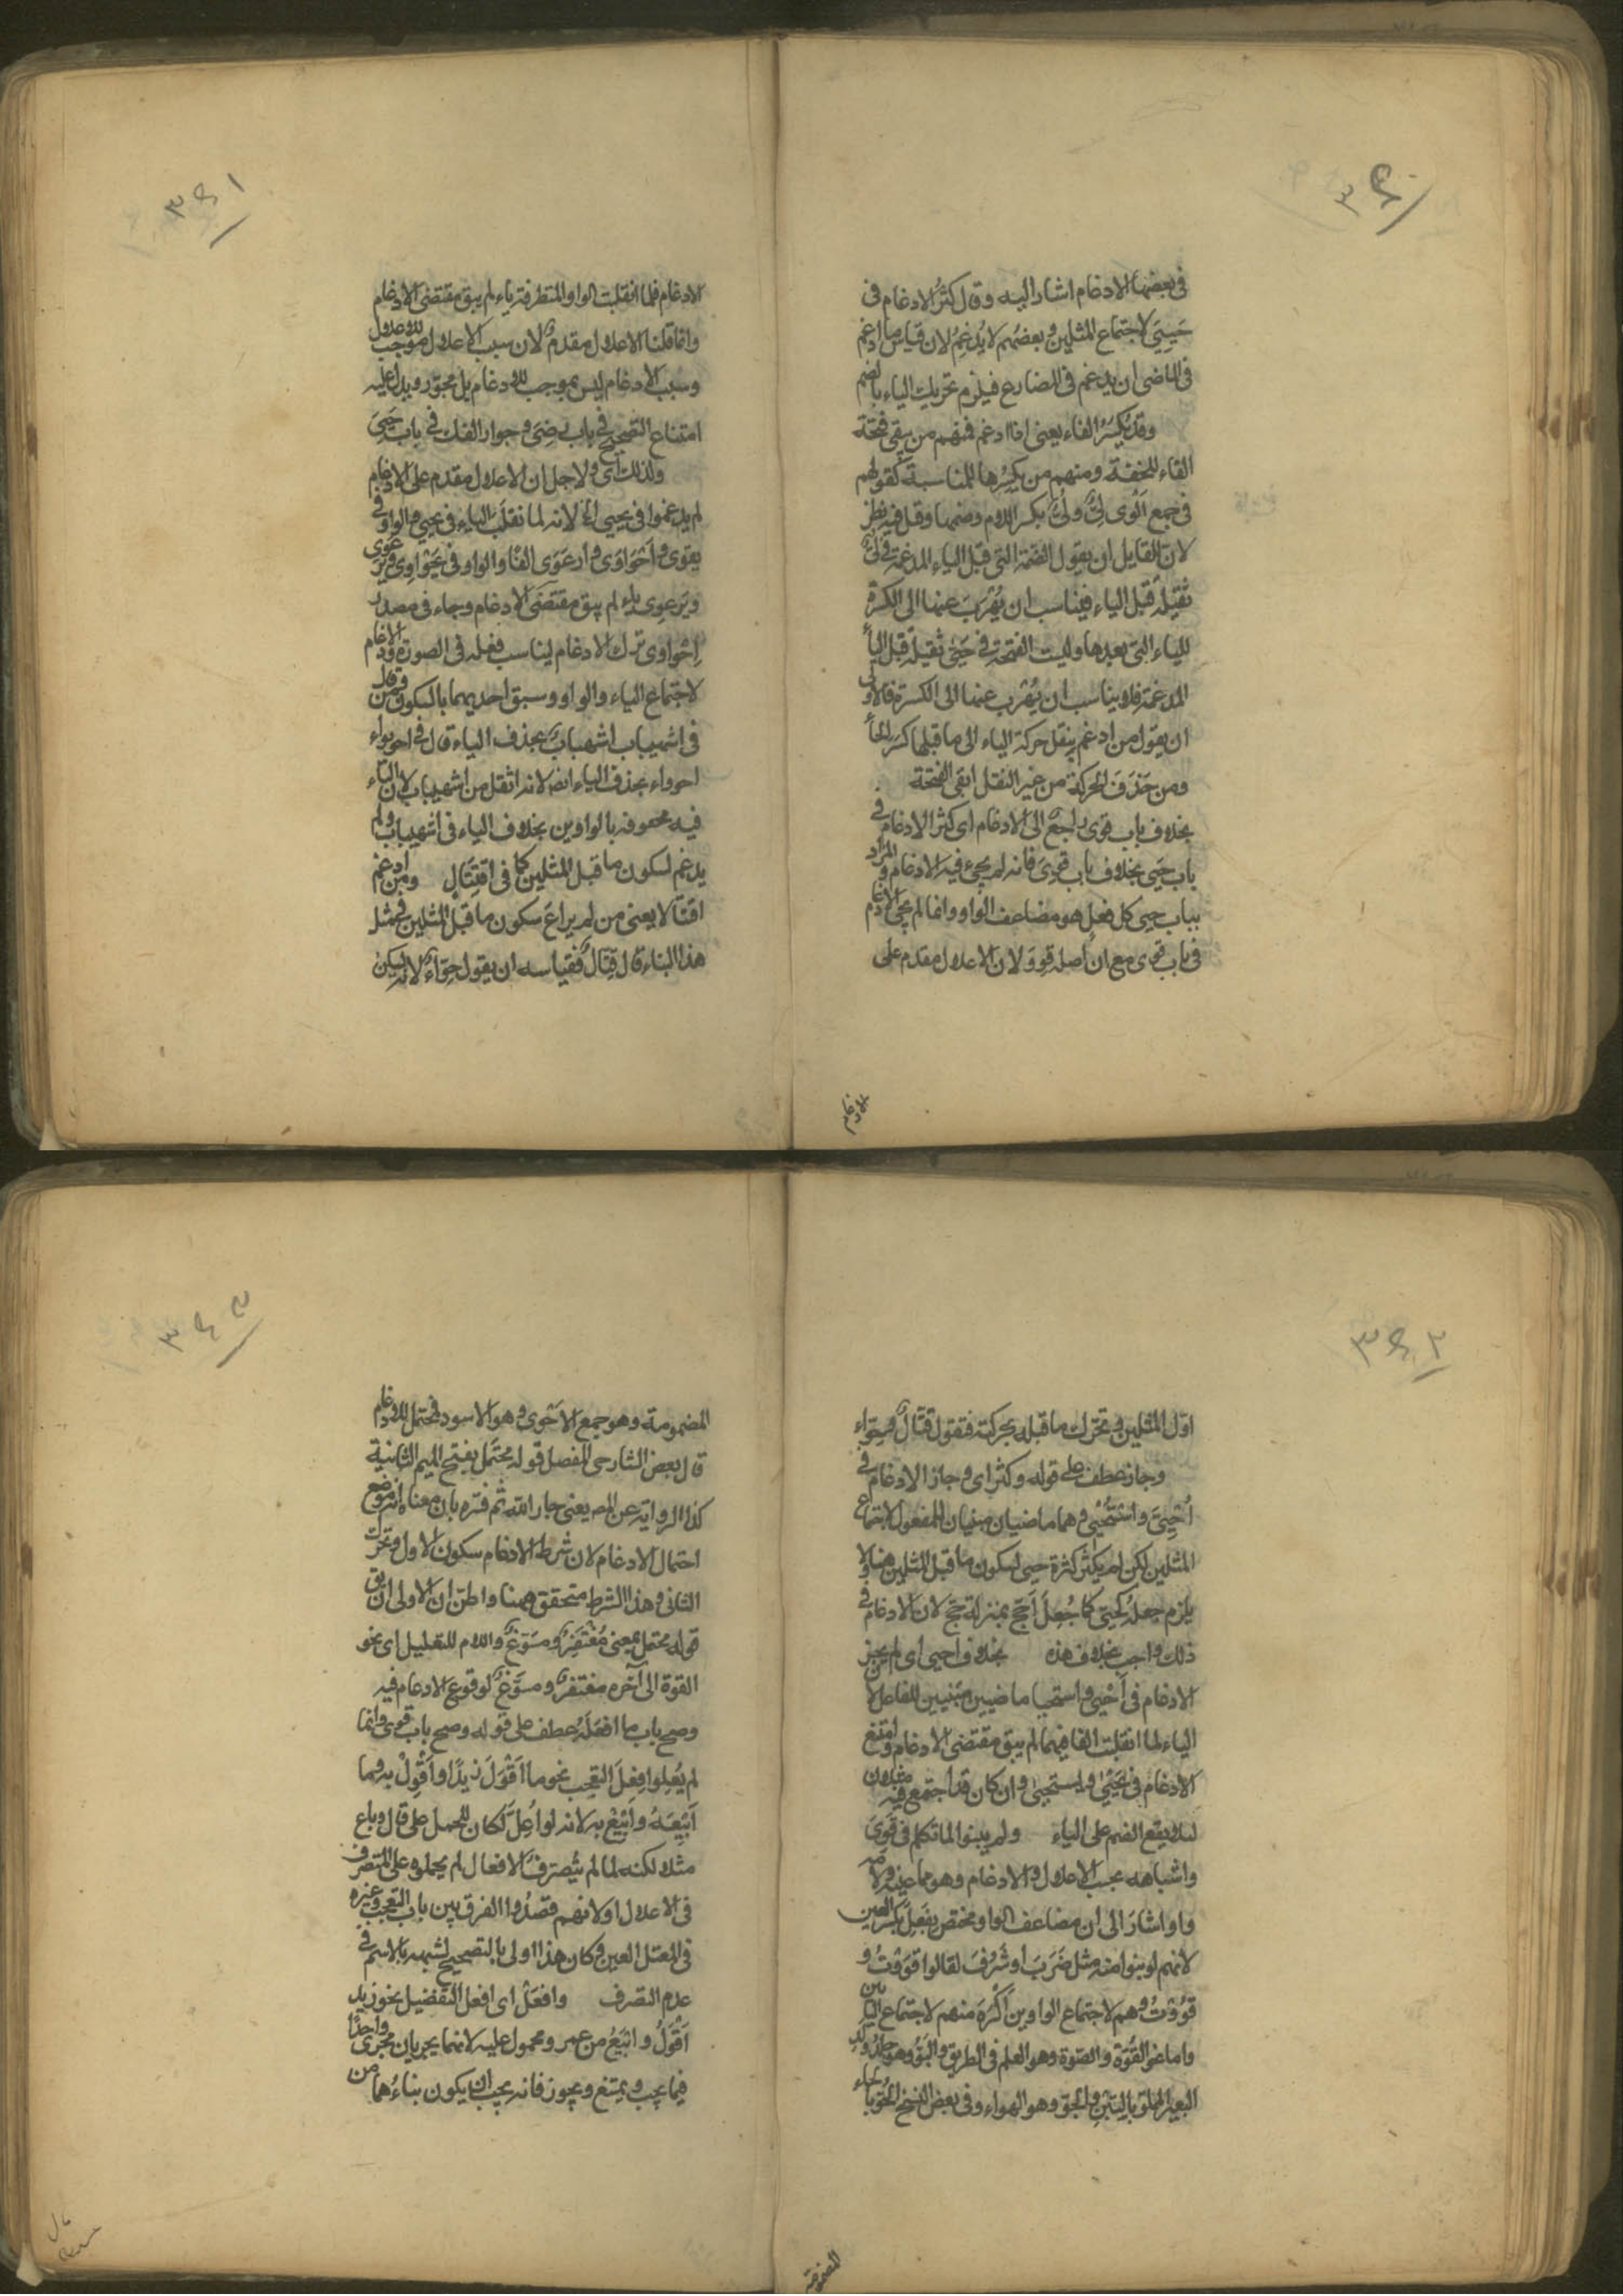 ٣٤٠
في بعضها الادغام اشار اليه وقال كثُر الادغام في
حَيِيَ لاجتماع المثلين وبعضهم لا يُدغِمُ لان قياس ما ادغم
في الماضي ان يدغم في المضارع فيلزم تحريك الياء بالضم
وقد يُكسَرُ الفاء يعني اذا ادغم فمنهم من يبقى فتحة
الفاء للخفة ومنهم من يكسِرُها للمناسبة كقولهم
في جمع اَلْوى لِيٌّ ولُيٌّ بكسر اللام وضمها وقل فيه نظر
لان القايل ان يقول الضمة التي قبل الياء المدغمة في لُيٍّ
ثقيلة قبل الياء فيناسب ان يُهْرَبَ عنها الى الكسرة
للياء التي بعدها وليست الفتحة في حَيَّ ثقيلة قبل اليا
المدغمة فلا يناسب ان يُهْرَب عنها الى الكسرة فالاولى
ان يقول من ادغم ينقل حركة الياء الى ما قبلها كسَرَ الحا
ومن حَذَفَ الحركة من غير النقل ابقى الفتحة
بخلاف باب قوى راجعٌ الى الادغام اى كثر الادغام في
باب حَيِيَ بخلاف باب قوِىَ فانه لم يجئ فيه الادغام والمراد
بباب حيي كل فعل هو مضاعف الواو وانما لم يجئ الادغام
في باب قوى مع ان اصله قوِوَ لان الاعلال مقدم على
الادغام
٣٤١
الادغام فلما انقلبت الواو المتطرفة ياء لم يبق مقتضى الادغام
وانما قلنا الاعلال مقدمٌ لان سبب الاعلال موجب للاعلال
وسبب الادغام ليس بموجب للادغام بل مجوّز ويدل عليه
امتناع التصحيح في باب رضِىَ وجواز الفك في باب حَيِىَ
ولذلك اى ولاجل ان الاعلال مقدم على الادغام
لم يدغموا في يحيي الخ لانه لما نقلبَت الياء في يحيي والواو في
يقوى واَحْوَاوَى وارعَوَى الفًا والواو في يَحْوَاوِى
ويَرعوِى ياء لم يبق مقتضى الادغام وجاء في مصدر
اِحْوَاوى ترك الادغام ليناسب فعله في الصورة والادغام
لاجتماع الياء والواو وسبق احديهما بالسكون ومن قال
في اشهيباب اشهبابٌ بحذف الياء قال في احويواء
احوواء بحذف الياء ايضا لانه اثقل من اشهيباب لان الياء
فيه محفوفة بالواوين بخلاف الياء في اشهيباب ولم
يدغم لسكون ما قبل المثلين كما في اقتِتَالٍ ومن ادغم
اقتتالا يعني من لم يراعَ سكون ما قبل المثلين في مثل
هذا البناء قال قِتّالٌ فقياسه ان يقول حِوّاءٌ لانه يسكن
٣٤٢
اوّل المثلين ويتحرك ما قبله بحركته فتقول قِتّالٌ وحِوّاء
وجاز عطف على قوله وكثر اى وجاز الادغام في
اُحْيِيَ واسْتُحْيِيَ وهما ماضيان مبنيان للمفعول لاجتماع
المثلين لكن لم يكثر كثرة حيى لسكون ما قبل المثلين هنا ولا
يلزم جعله كحيّ كما جُعِلَ اَحَجّ بمنزلة حَجّ لان الادغام في
ذلك واجب بخلاف هذه بخلاف احيى اى لم يجز
الادغام في اَحْيَى واستحيا ماضيين مبنيين للفاعل لان
الياء لما انقلبت الفا فيهما لم يبق مقتضى الادغام وامتنع
الادغام في يُحْيِى ويستحيى وان كان قد اجتمع فيه مثلان
لئلا يقع الضم على الياء ولم يبنوا لما تكلم في قَوِىَ
واشباهه بحسب الاعلال والادغام وهو مما عينه ولامه
واو اشارَ الى ان مضاعف الواو مختص بفعِلَ بكسر العين
لانهم لو بنوا منه مثل ضَرَبَ او شَرُفَ لقالوا قَوَوْتُ و
قَوُوْتُ وهم لاجتماع الواوين اَكْرَهُ منهم لاجتماع اليائين
واما نحو القُوّة والصّوة وهو العلم في الطريق والبَوِّ وهو جلد ولد
البعير المملوّ بالتِبْنِ والجوّ وهو الهواء وفي بعض النسخ الحُوّ بالحاء
المضمومة
٣٤٣
المضمومة وهو جمع الاَحْوى وهو الاسود فمحتمل للادغام
قال بعض الشارحي المفصل قوله محتَمَل بفتح الميم الثانية
كذا الرواية عن المص يعني جار الله ثم فسّره بان معناه انه موضع
احتمال الادغام لان شرط الادغام سكون الاول وتحرك
الثاني وهذا الشرط متحقق ههنا واظن ان الاولى ان يق
قوله محتمل بمعنى مُغْتَفَرٌ ومسَوّغٌ واللام للتعليل اى نحو
القوة الى آخره مغتفرٌ ومسوّغٌ لوقوع الادغام فيه
وصح باب ما افعَلَهُ عطف على قوله وصح باب قوى وانما
لم يُعِلوا فِعلَ التعجب نحو ما اَقْوَلَ زيدًا واَقْوِلْ به وما
اَبْيَعَهُ واَبْيِعْ به لانه لو اُعِلَّ لكان للحمل على قال وباع
مثلا لكنه لما لم يتصرف الافعال لم يحملوه على المتصرف
في الاعلال او لانهم قصَدُوا الفرق بين باب التعجب وغيره
في المعتل العين وكان هذا اولى بالتصحيح لشبهه بالاسم في
عدم التصرف وافعَلُ اى افعل التفضيل نحو زيد
اَقْوَلُ واَبْيَعُ من عمرو محمول عليه لانهما يجريان مجرى واحدًا
فيما يجب ويمتنع ويجوز فانه يجب ان يكون بناءُهما من